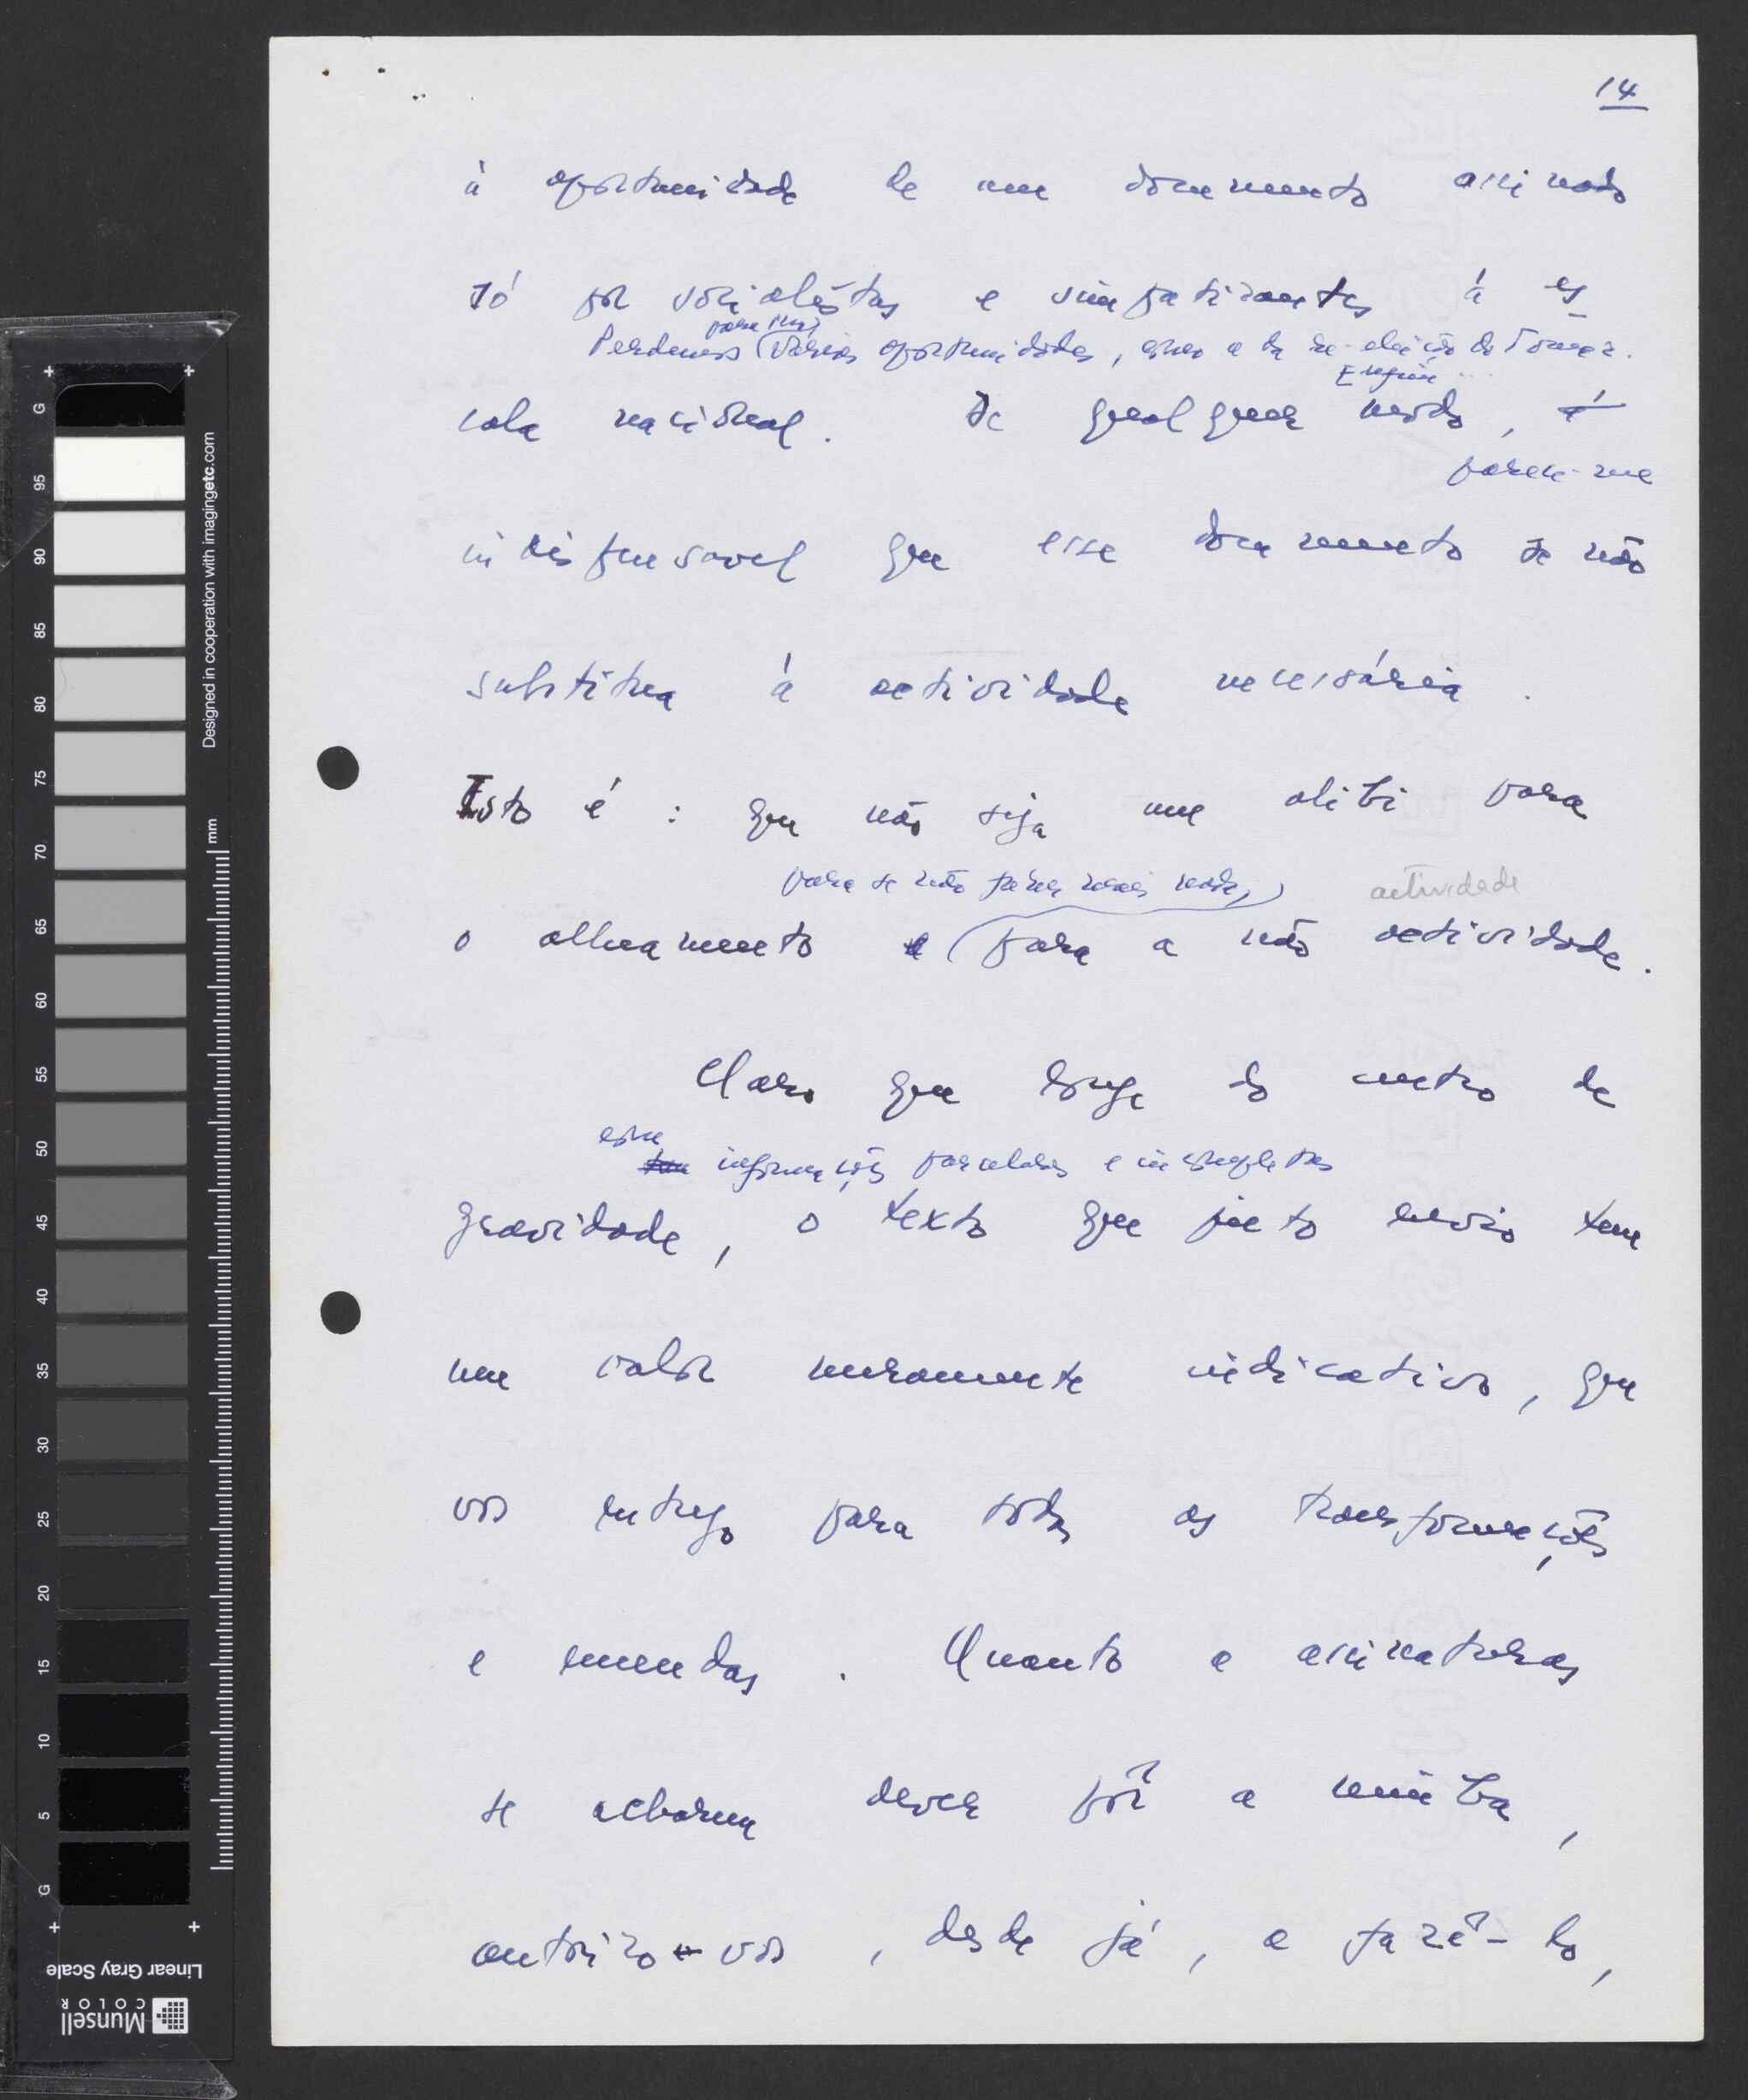 14
à oportunidade de um documento assinado
só por socialistas e simpatizantes à es-
Perdemos (para mim) várias oportunidades, como a da re-eleição do Tomaz.
E seguiu...
cala nacional. De qualquer modo, é
parece-me
indispensavel que esse documento se não
substitua à actividade necessária.
Isto é: que não seja um alibi para
para se não fazer mais nada,
actividade
o alheamento e para a não actividade.
Claro que longe do centro de
com
informações parcelares e incompletas
gravidade, o texto que junto envio tem
um valor meramente indicativo, que
vos entrego para todas as transformações
e emendas. Quanto a assinaturas
se acharem dever pôr a minha,
autorizo-vos, desde já, a fazê-lo,
G
95
90
85
80
75
70
65
60
55
50
45
40
35
30
25
20
15
10
5
G
Designed in cooperation with imagingetc.com
mm
Linear Gray Scale
Munsell
COLOR